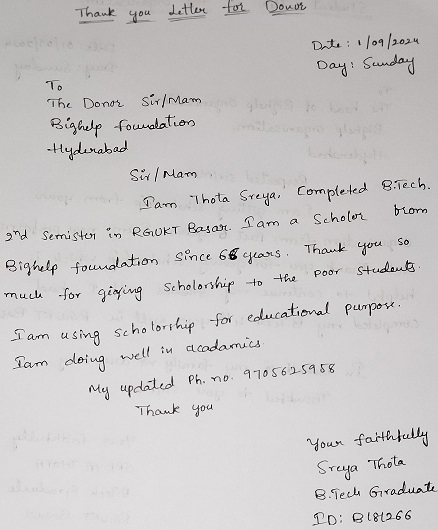 Thank you Letter for Donor
Date: 1/09/2024
Day: Sunday
To
The Donor Sir/Mam
Bighelp foundation
Hyderabad
Sir/Mam
I am Thota Sreya. Completed B.Tech.
2nd Semister in RGUKT Basar. I am a Scholor from
Bighelp foundation since 6 years. Thank you so
much for giving Scholorship to the poor students.
I am using scholorship for educational purpose.
I am doing well in acadamics.
My updated Ph. no. 9705625958
Thank you
Your faithfully
Sreya Thota
B.Tech Graduate
ID: B181266